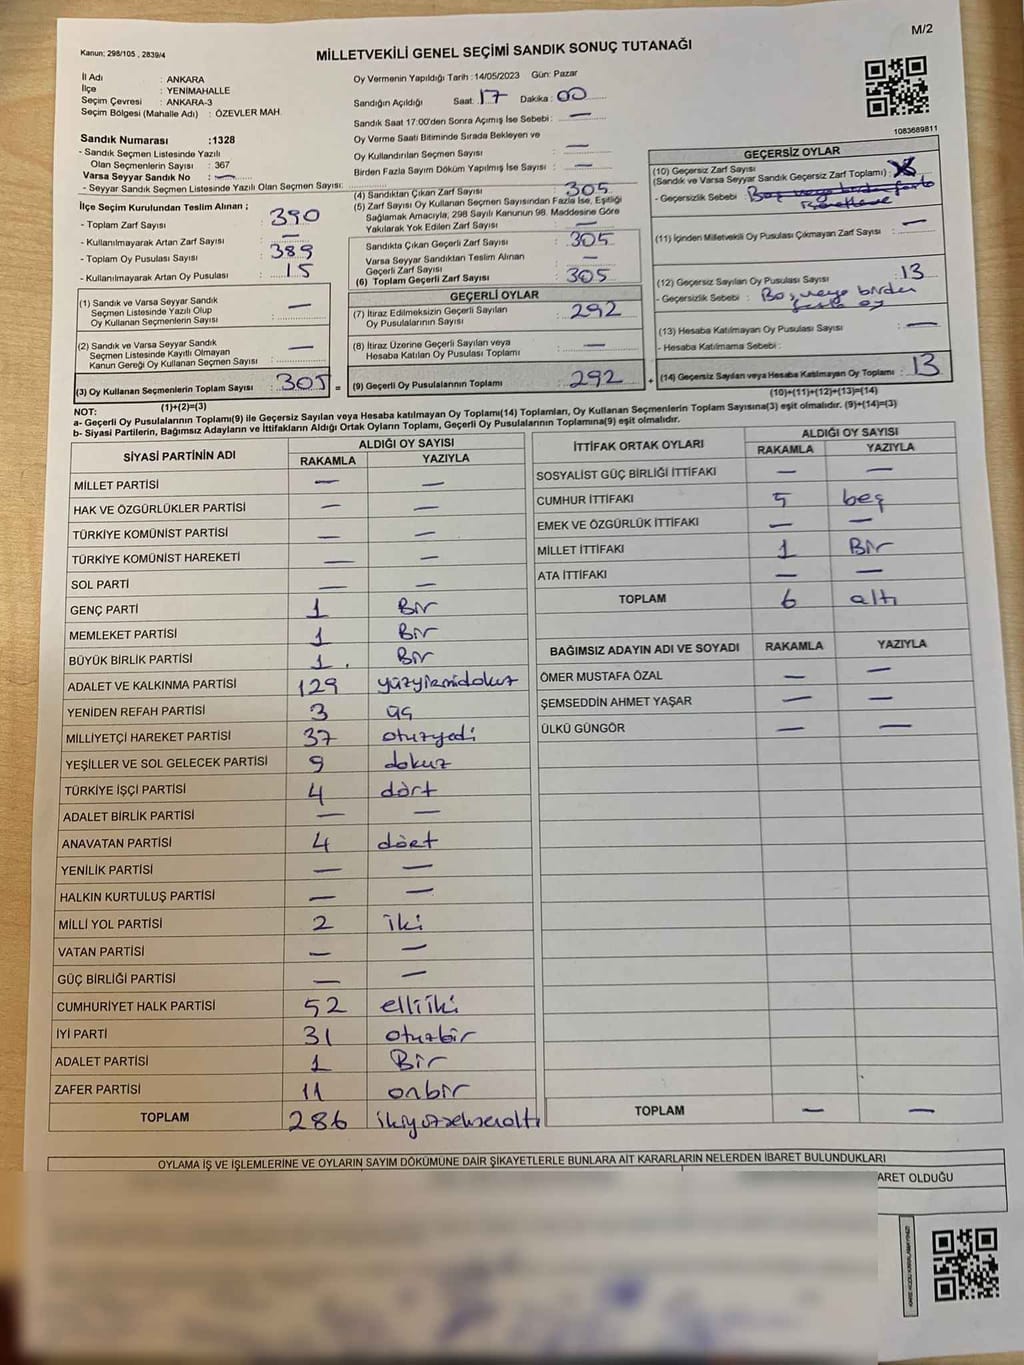 M/2
Kanun: 298/105 , 2839/4
MİLLETVEKİLİ GENEL SEÇİMİ SANDIK SONUÇ TUTANAĞI
İl Adı : ANKARA
İlçe : YENİMAHALLE
Seçim Çevresi : ANKARA-3
Seçim Bölgesi (Mahalle Adı) : ÖZEVLER MAH.
Sandık Numarası :1328
- Sandık Seçmen Listesinde Yazılı
Olan Seçmenlerin Sayısı : 367
Varsa Seyyar Sandık No : —
- Seyyar Sandık Seçmen Listesinde Yazılı Olan Seçmen Sayısı:
İlçe Seçim Kurulundan Teslim Alınan ;
- Toplam Zarf Sayısı : 390
- Kullanılmayarak Artan Zarf Sayısı : —
- Toplam Oy Pusulası Sayısı : 389
- Kullanılmayarak Artan Oy Pusulası : 15
(1) Sandık ve Varsa Seyyar Sandık
Seçmen Listesinde Yazılı Olup
Oy Kullanan Seçmenlerin Sayısı : —
(2) Sandık ve Varsa Seyyar Sandık
Seçmen Listesinde Kayıtlı Olmayan
Kanun Gereği Oy Kullanan Seçmen Sayısı : —
(3) Oy Kullanan Seçmenlerin Toplam Sayısı : 305 =
(1)+(2)=(3)
Oy Vermenin Yapıldığı Tarih :14/05/2023 Gün: Pazar
Sandığın Açıldığı Saat: 17 Dakika: 00
Sandık Saat 17:00'den Sonra Açımış İse Sebebi : —
Oy Verme Saati Bitiminde Sırada Bekleyen ve
Oy Kullandırılan Seçmen Sayısı : —
Birden Fazla Sayım Döküm Yapılmış İse Sayısı : —
(4) Sandıktan Çıkan Zarf Sayısı : 305
(5) Zarf Sayısı Oy Kullanan Seçmen Sayısından Fazla İse, Eşitliği
Sağlamak Amacıyla; 298 Sayılı Kanunun 98. Maddesine Göre
Yakılarak Yok Edilen Zarf Sayısı : —
Sandıkta Çıkan Geçerli Zarf Sayısı : 305
Varsa Seyyar Sandıktan Teslim Alınan
Geçerli Zarf Sayısı : —
(6) Toplam Geçerli Zarf Sayısı : 305
GEÇERLİ OYLAR
(7) İtiraz Edilmeksizin Geçerli Sayılan
Oy Pusulalarının Sayısı : 292
(8) İtiraz Üzerine Geçerli Sayılan veya
Hesaba Katılan Oy Pusulası Toplamı : —
(9) Geçerli Oy Pusulalarının Toplamı : 292 +
1083689811
GEÇERSİZ OYLAR
(10) Geçersiz Zarf Sayısı
(Sandık ve Varsa Seyyar Sandık Geçersiz Zarf Toplamı) :
- Geçersizlik Sebebi : Boş veya birden fazla
(11) İçinden Milletvekili Oy Pusulası Çıkmayan Zarf Sayısı : —
(12) Geçersiz Sayılan Oy Pusulası Sayısı : 13
- Geçersizlik Sebebi : Boş veya birden
fazla oy
(13) Hesaba Katılmayan Oy Pusulası Sayısı : —
- Hesaba Katılmama Sebebi :
(14) Geçersiz Sayılan veya Hesaba Katılmayan Oy Toplamı : 13
(10)+(11)+(12)+(13)=(14)
NOT:
a- Geçerli Oy Pusulalarının Toplamı(9) ile Geçersiz Sayılan veya Hesaba katılmayan Oy Toplamı(14) Toplamları, Oy Kullanan Seçmenlerin Toplam Sayısına(3) eşit olmalıdır. (9)+(14)=(3)
b- Siyasi Partilerin, Bağımsız Adayların ve İttifakların Aldığı Ortak Oyların Toplamı, Geçerli Oy Pusulalarının Toplamına(9) eşit olmalıdır.
SİYASİ PARTİNİN ADI ALDIĞI OY SAYISI
RAKAMLA YAZIYLA
MİLLET PARTİSİ — —
HAK VE ÖZGÜRLÜKLER PARTİSİ — —
TÜRKİYE KOMÜNİST PARTİSİ — —
TÜRKİYE KOMÜNİST HAREKETİ — —
SOL PARTİ — —
GENÇ PARTİ 1 Bir
MEMLEKET PARTİSİ 1 Bir
BÜYÜK BİRLİK PARTİSİ 1. Bir
ADALET VE KALKINMA PARTİSİ 129 yüzyirmidokuz
YENİDEN REFAH PARTİSİ 3 üç
MİLLİYETÇİ HAREKET PARTİSİ 37 otuzyedi
YEŞİLLER VE SOL GELECEK PARTİSİ 9 dokuz
TÜRKİYE İŞÇİ PARTİSİ 4 dört
ADALET BİRLİK PARTİSİ — —
ANAVATAN PARTİSİ 4 dört
YENİLİK PARTİSİ — —
HALKIN KURTULUŞ PARTİSİ — —
MİLLİ YOL PARTİSİ 2 iki
VATAN PARTİSİ — —
GÜÇ BİRLİĞİ PARTİSİ — —
CUMHURİYET HALK PARTİSİ 52 elliiki
İYİ PARTİ 31 otuzbir
ADALET PARTİSİ 1 Bir
ZAFER PARTİSİ 11 onbir
TOPLAM 286 ikiyüzseksenaltı
İTTİFAK ORTAK OYLARI ALDIĞI OY SAYISI
RAKAMLA YAZIYLA
SOSYALİST GÜÇ BİRLİĞİ İTTİFAKI — —
CUMHUR İTTİFAKI 5 beş
EMEK VE ÖZGÜRLÜK İTTİFAKI — —
MİLLET İTTİFAKI 1 Bir
ATA İTTİFAKI — —
TOPLAM 6 altı
BAĞIMSIZ ADAYIN ADI VE SOYADI RAKAMLA YAZIYLA
ÖMER MUSTAFA ÖZAL — —
ŞEMSEDDİN AHMET YAŞAR — —
ÜLKÜ GÜNGÖR — —
TOPLAM — —
OYLAMA İŞ VE İŞLEMLERİNE VE OYLARIN SAYIM DÖKÜMÜNE DAİR ŞİKAYETLERLE BUNLARA AİT KARARLARIN NELERDEN İBARET BULUNDUKLARI
ARET OLDUĞU